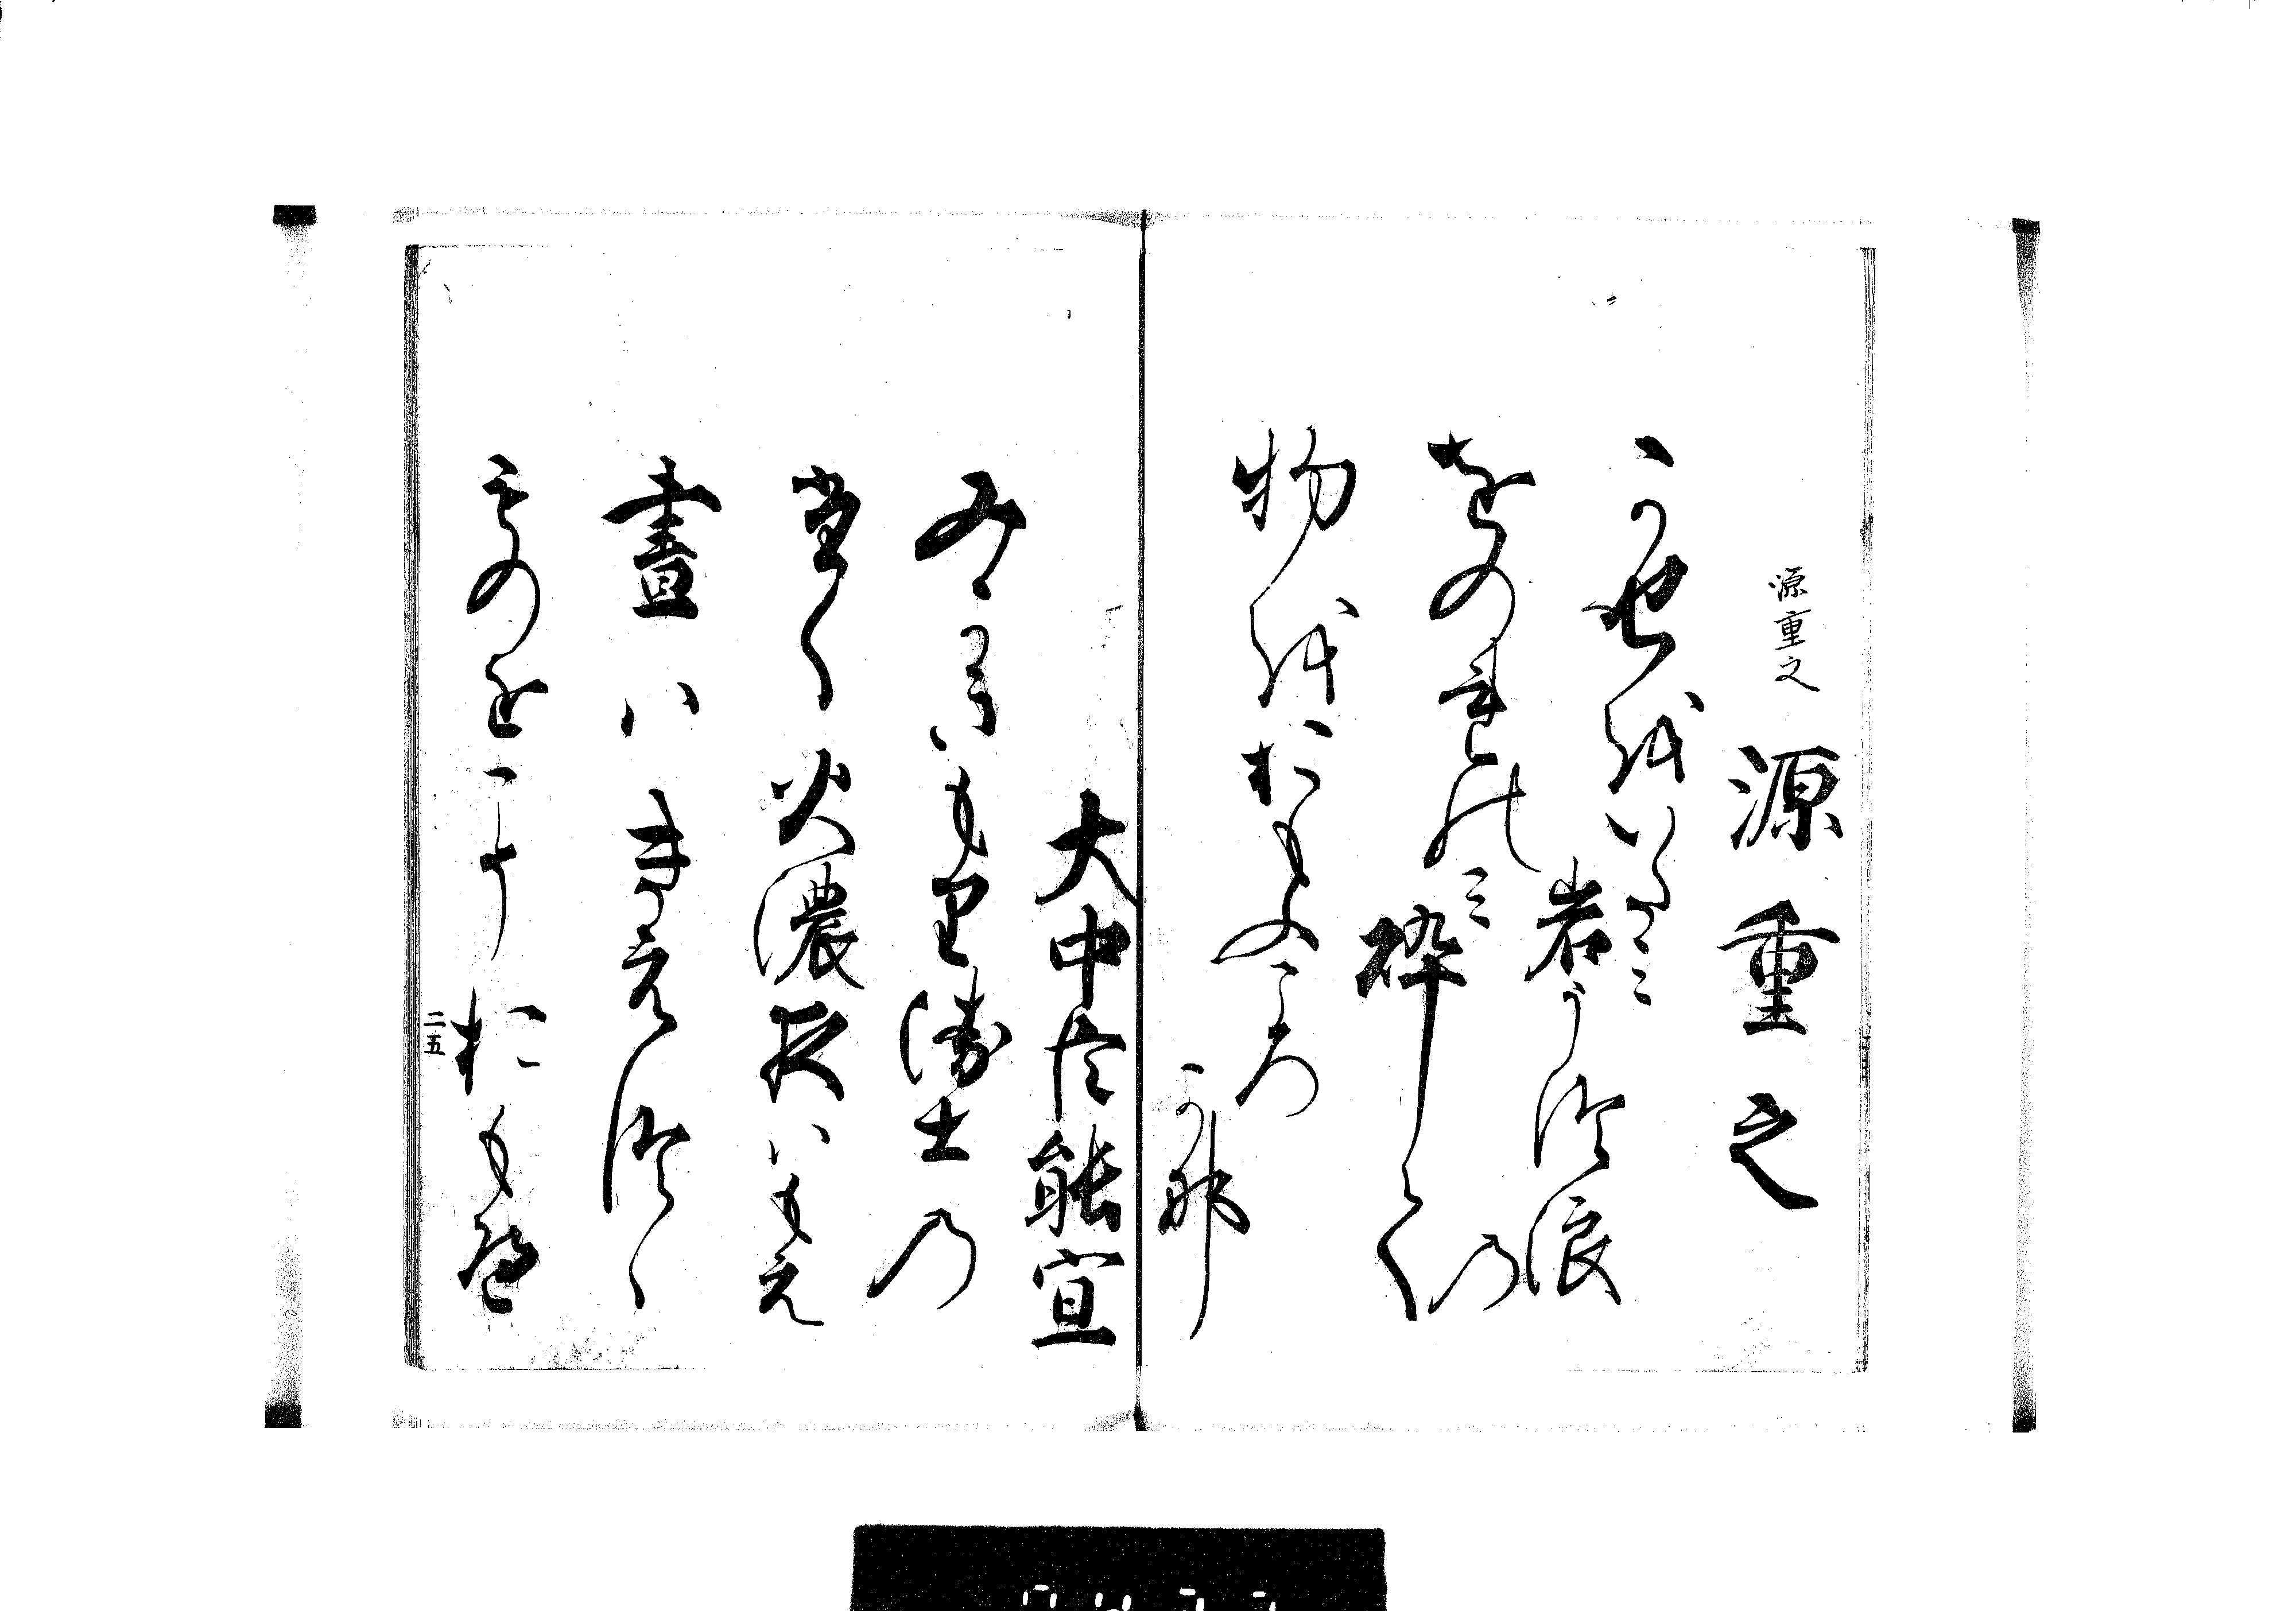 源重之
源重之
かせをいたみ
岩うつ浪の
をのれのみ
砕けて
物をおもふころ
かな
大中臣能宣
みかきもり衛士の
たく火の夜はもえ
晝はきえつゝ
ものをこそおもへ
二五